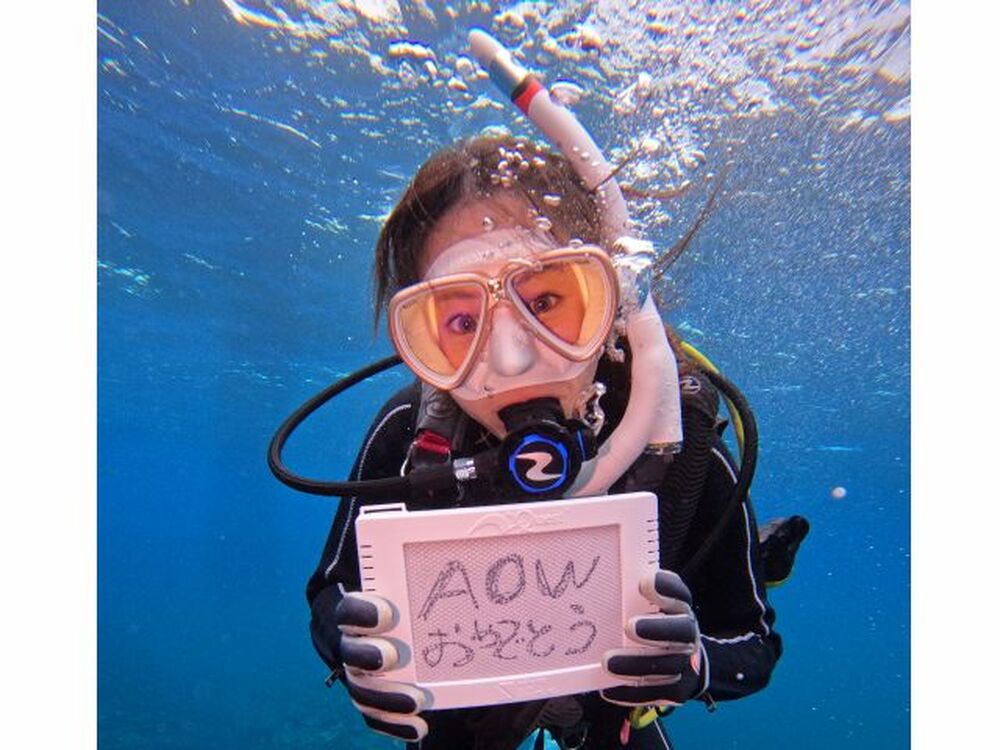 AOW
おめでとう